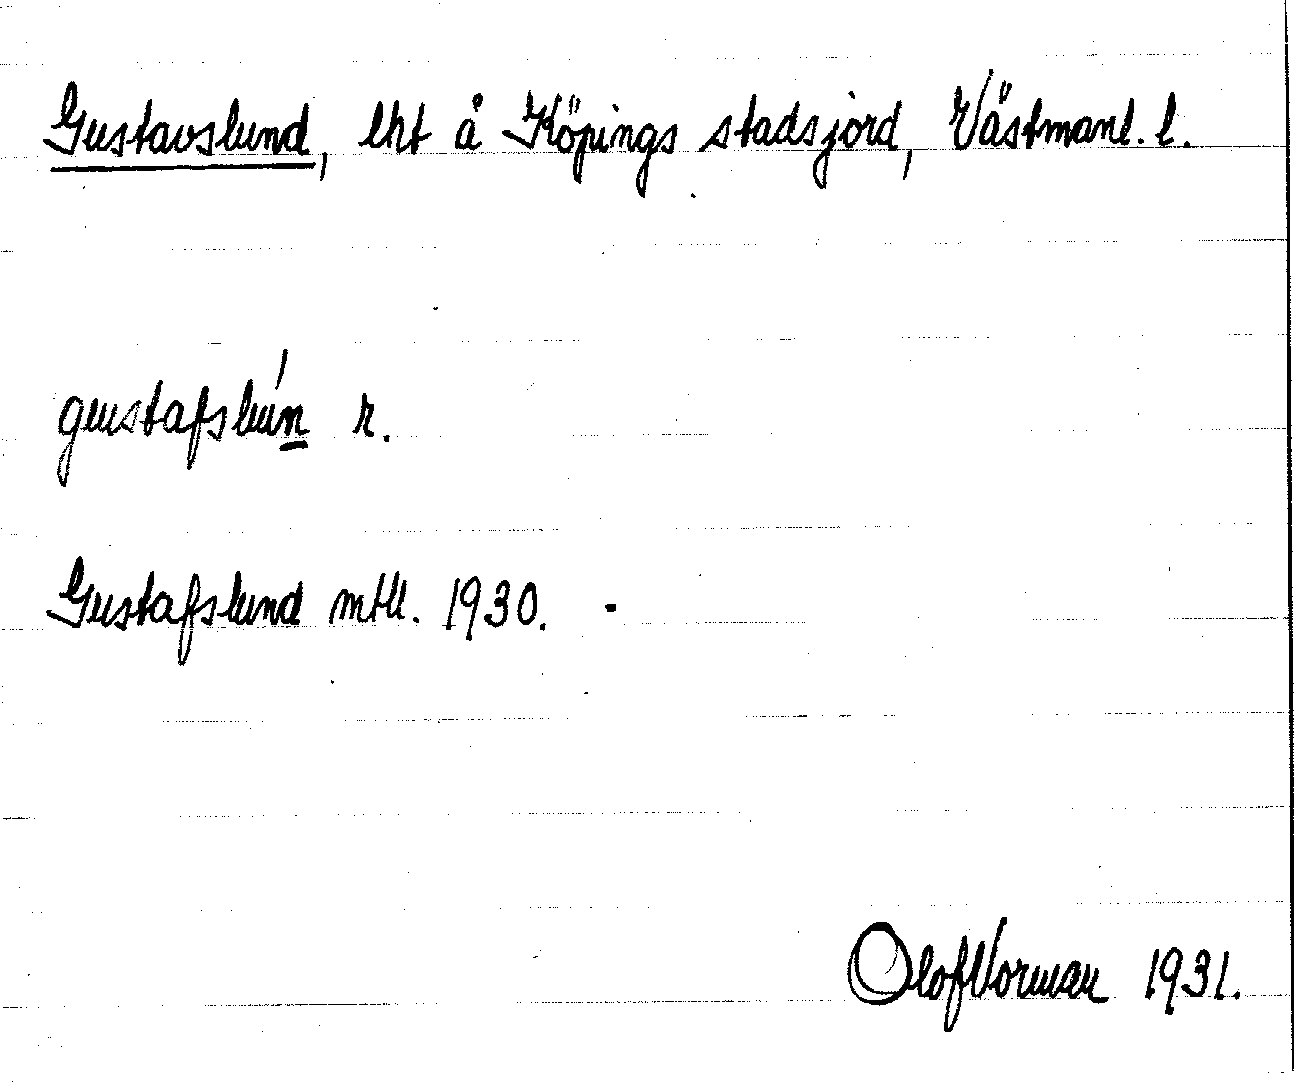 Gustavslund, lht å Köpings stadsjord, Västmanl. l.
gustafslún r.
Gustafslund mtl. 1930.
Olof Vorman 1931.